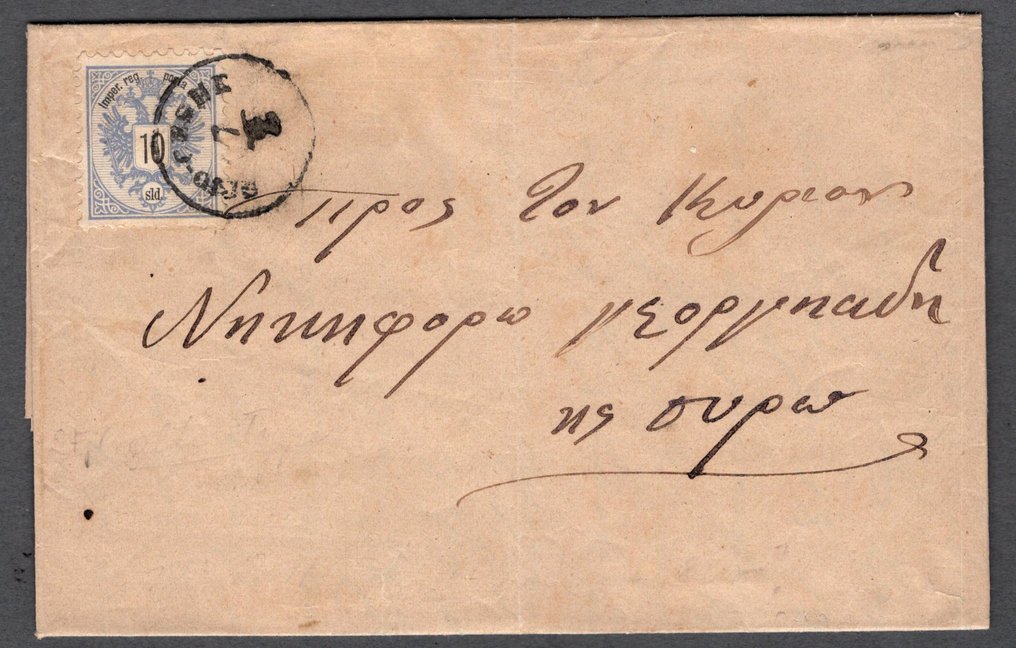 Imper. reg. posta
10
sld.
7
προς τον Κυριον
Νηκηφορω γεοργηαδη
ης συρω